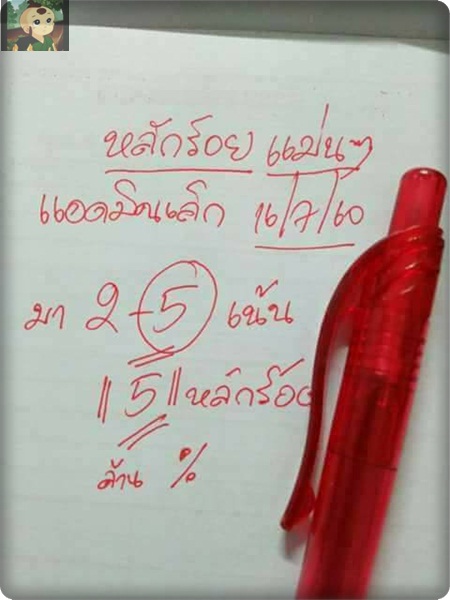 หลักร้อย แม่นๆ
แอดมินเล็ก 16/7/60
มา 2-5 เน้น
"5" หลักร้อย
ล้าน %